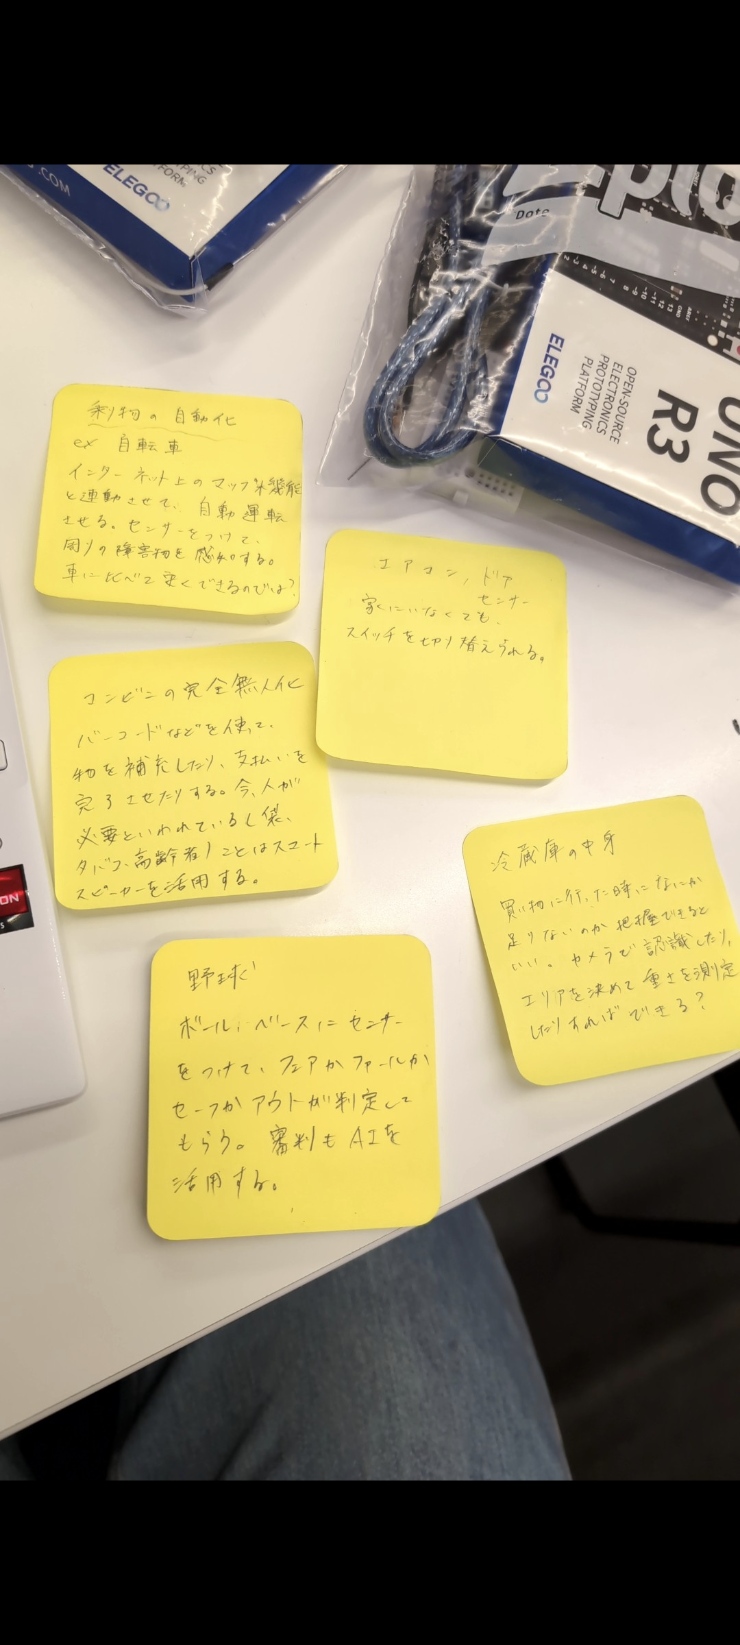 .COM
ELEGOO
TYPING
FORM
Dote
ELEGOO
OPEN-SOURCE
ELECTRONICS
PROTOTYPING
PLATFORM
UNO
R3
乗り物の自動化
ex 自転車
インターネット上のマップ機能
と連動させて、自動運転
させる。センサーをつけて、
周りの障害物を感知する。
車に比べて安くできるのでは?
エアコン, ドア
センサー
家にいなくても、
スイッチを切り替えられる。
コンビニの完全無人化
バーコードなどを使って、
物を補充したり、支払いを
完了させたりする。今、人が
必要といわれているレジ袋、
タバコ、高齢者
スピーカーを活用する。
冷蔵庫の中身
買い物に行った時になにが
足りないのか把握できると
いい。カメラで認識したり、
エリアを決めて重さを測定
したりすればできる?
野球
ボール、ベースにセンサー
をつけて、フェアかファールか
セーフかアウトか判定して
もらう。審判もAIを
活用する。